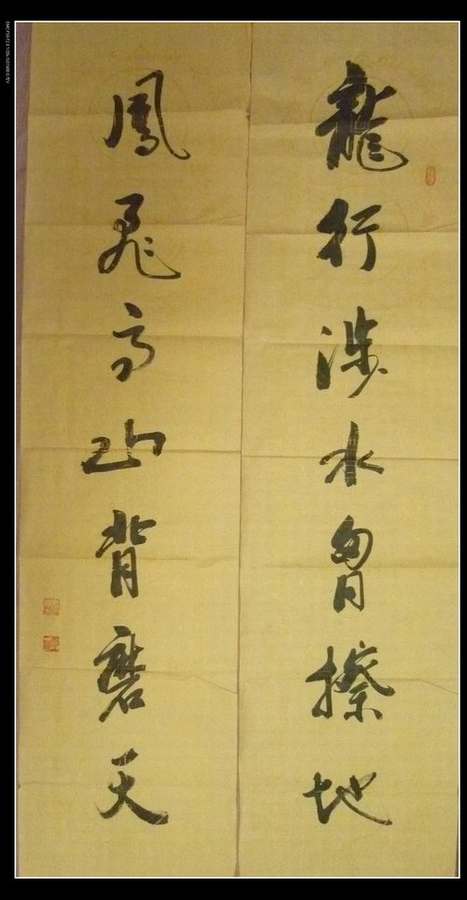 龍行涉水胷擦地
鳳飛高山背磨天